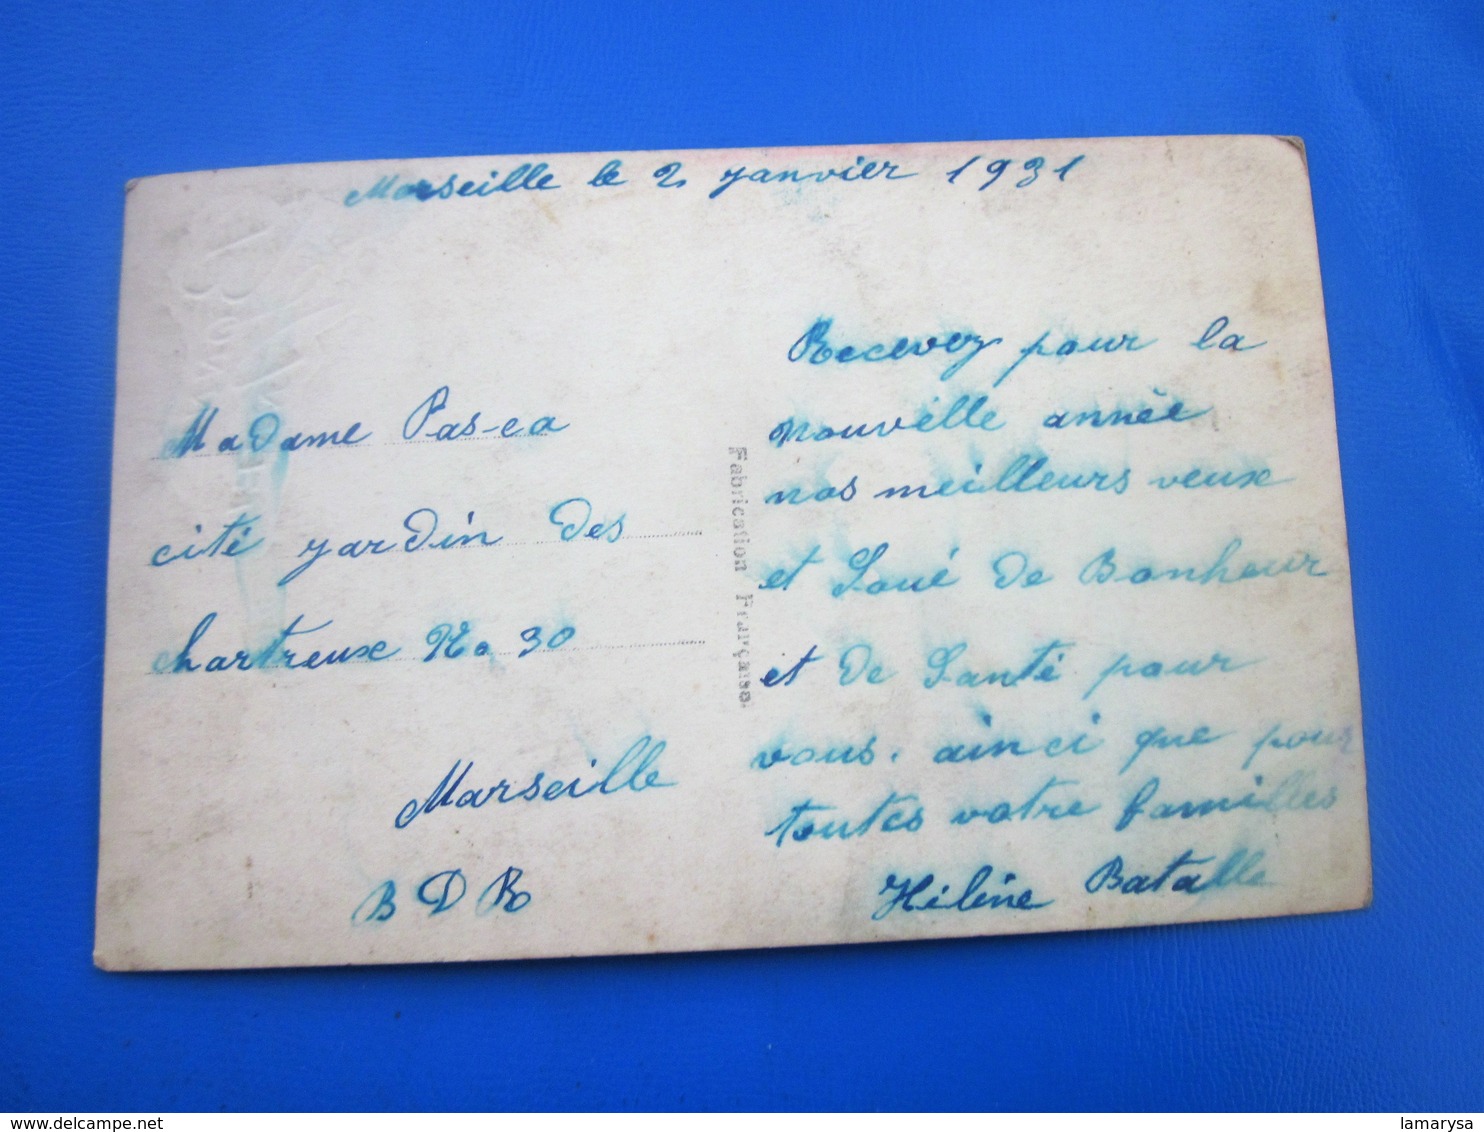 Marseille le 2 janvier 1931
Madame Pas-ca
cité jardin des
chartreux No 30
Marseille
B D R
Fabrication Française.
Recevez pour la
nouvelle année
nos meilleurs veux
et Soué de Bonheur
et de Santé pour
vous. ainci que pour
toutes votre familles
Hélène Batalle
lamarysa
www.delcampe.net